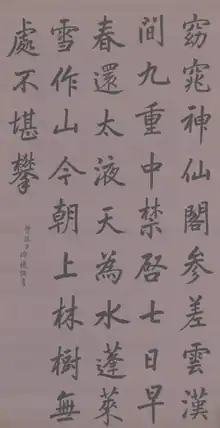 窈窕神仙閣參差雲漢
間九重中禁啓七日早
春還太液天為水蓬萊
雪作山今朝上林樹無
處不堪攀